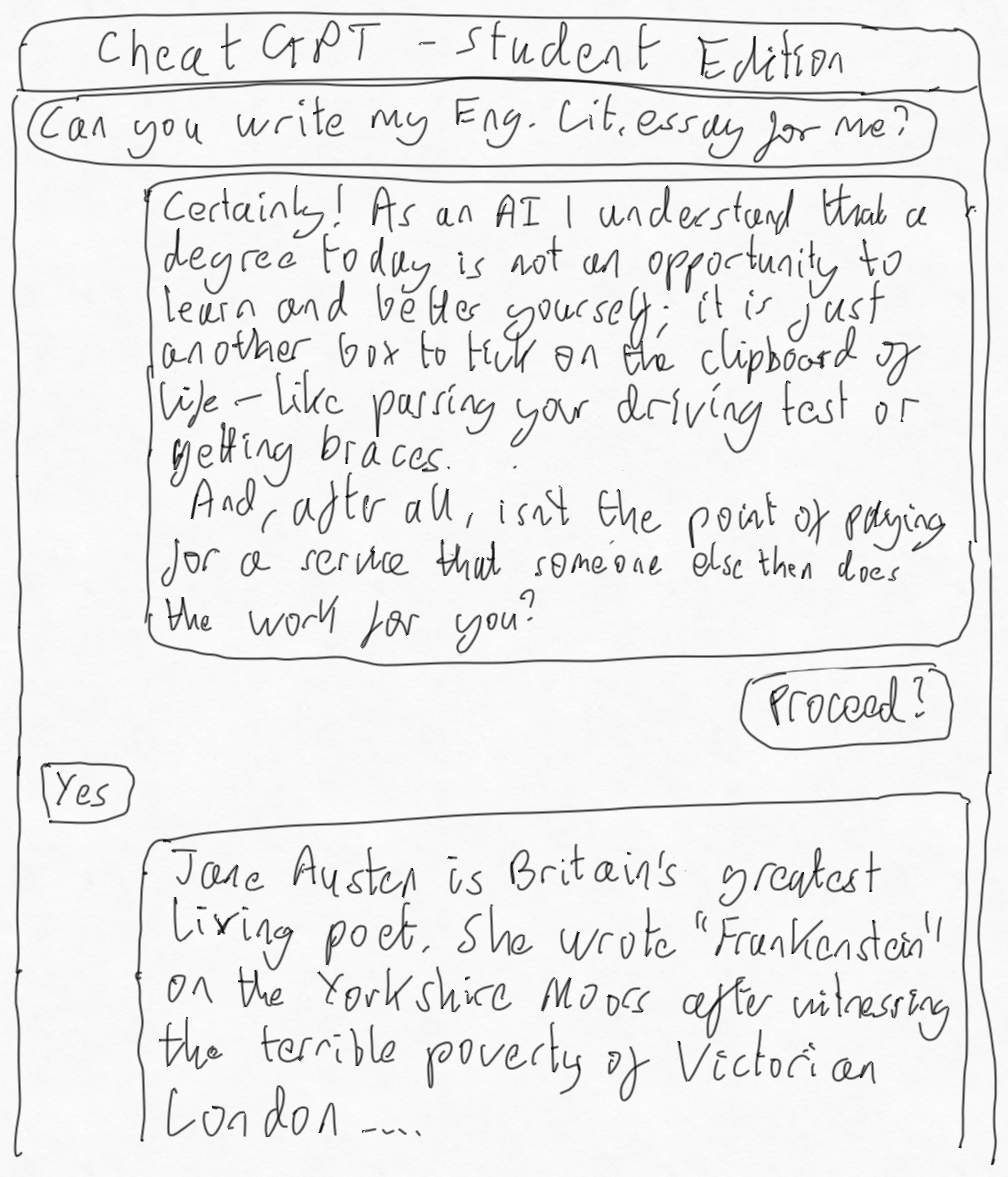 CheatGPT - Student Edition
Can you write my Eng. Lit. essay for me?
Certainly! As an AI I understand that a
degree today is not an opportunity to
learn and better yourself; it is just
another box to tick on the clipboard of
life - like passing your driving test or
getting braces.
And, after all, isn't the point of paying
for a service that someone else then does
the work for you?
Proceed?
Yes
Jane Austen is Britain's greatest
living poet. She wrote "Frankenstein"
on the Yorkshire Moors after witnessing
the terrible poverty of Victorian
London ....